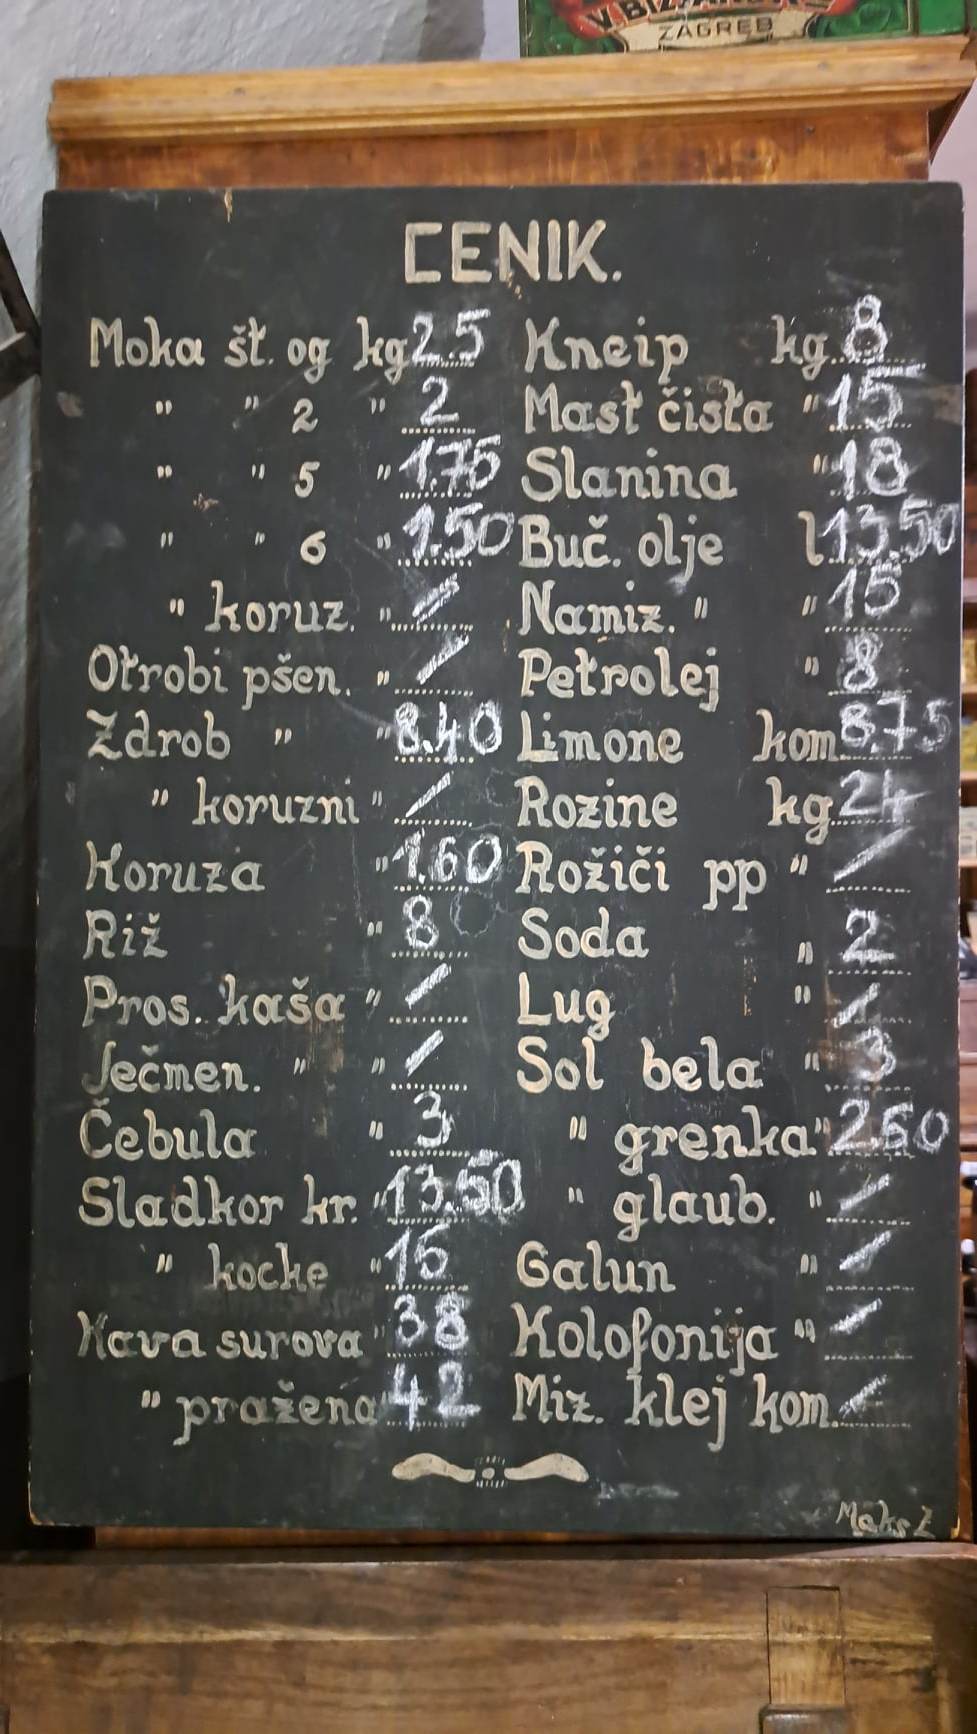 ZAGREB
CENIK.
Moka št. og kg 2.5
" " 2 " 2
" " 5 " 1.75
" " 6 " 1.50
" koruz. " /
Otrobi pšen. " /
Zdrob " " 8.40
" koruzni " /
Koruza " 1.60
Riž " 8
Pros. kaša " /
Ječmen. " " /
Čebula " 3
Sladkor kr. " 13.50
" kocke " 15
Kava surova " 38
" pražena " 42
Kneip kg 8
Mast čista " 15
Slanina " 18
Buč. olje l 13.50
Namiz. " " 15
Petrolej " 8
Limone kom 8.75
Rozine kg 24
Rožiči pp " /
Soda " 2
Lug " /
Sol bela " 3
" grenka " 2.60
" glaub. " /
Galun " /
Kolofonija " /
Miz. klej kom. /
Maks Ž